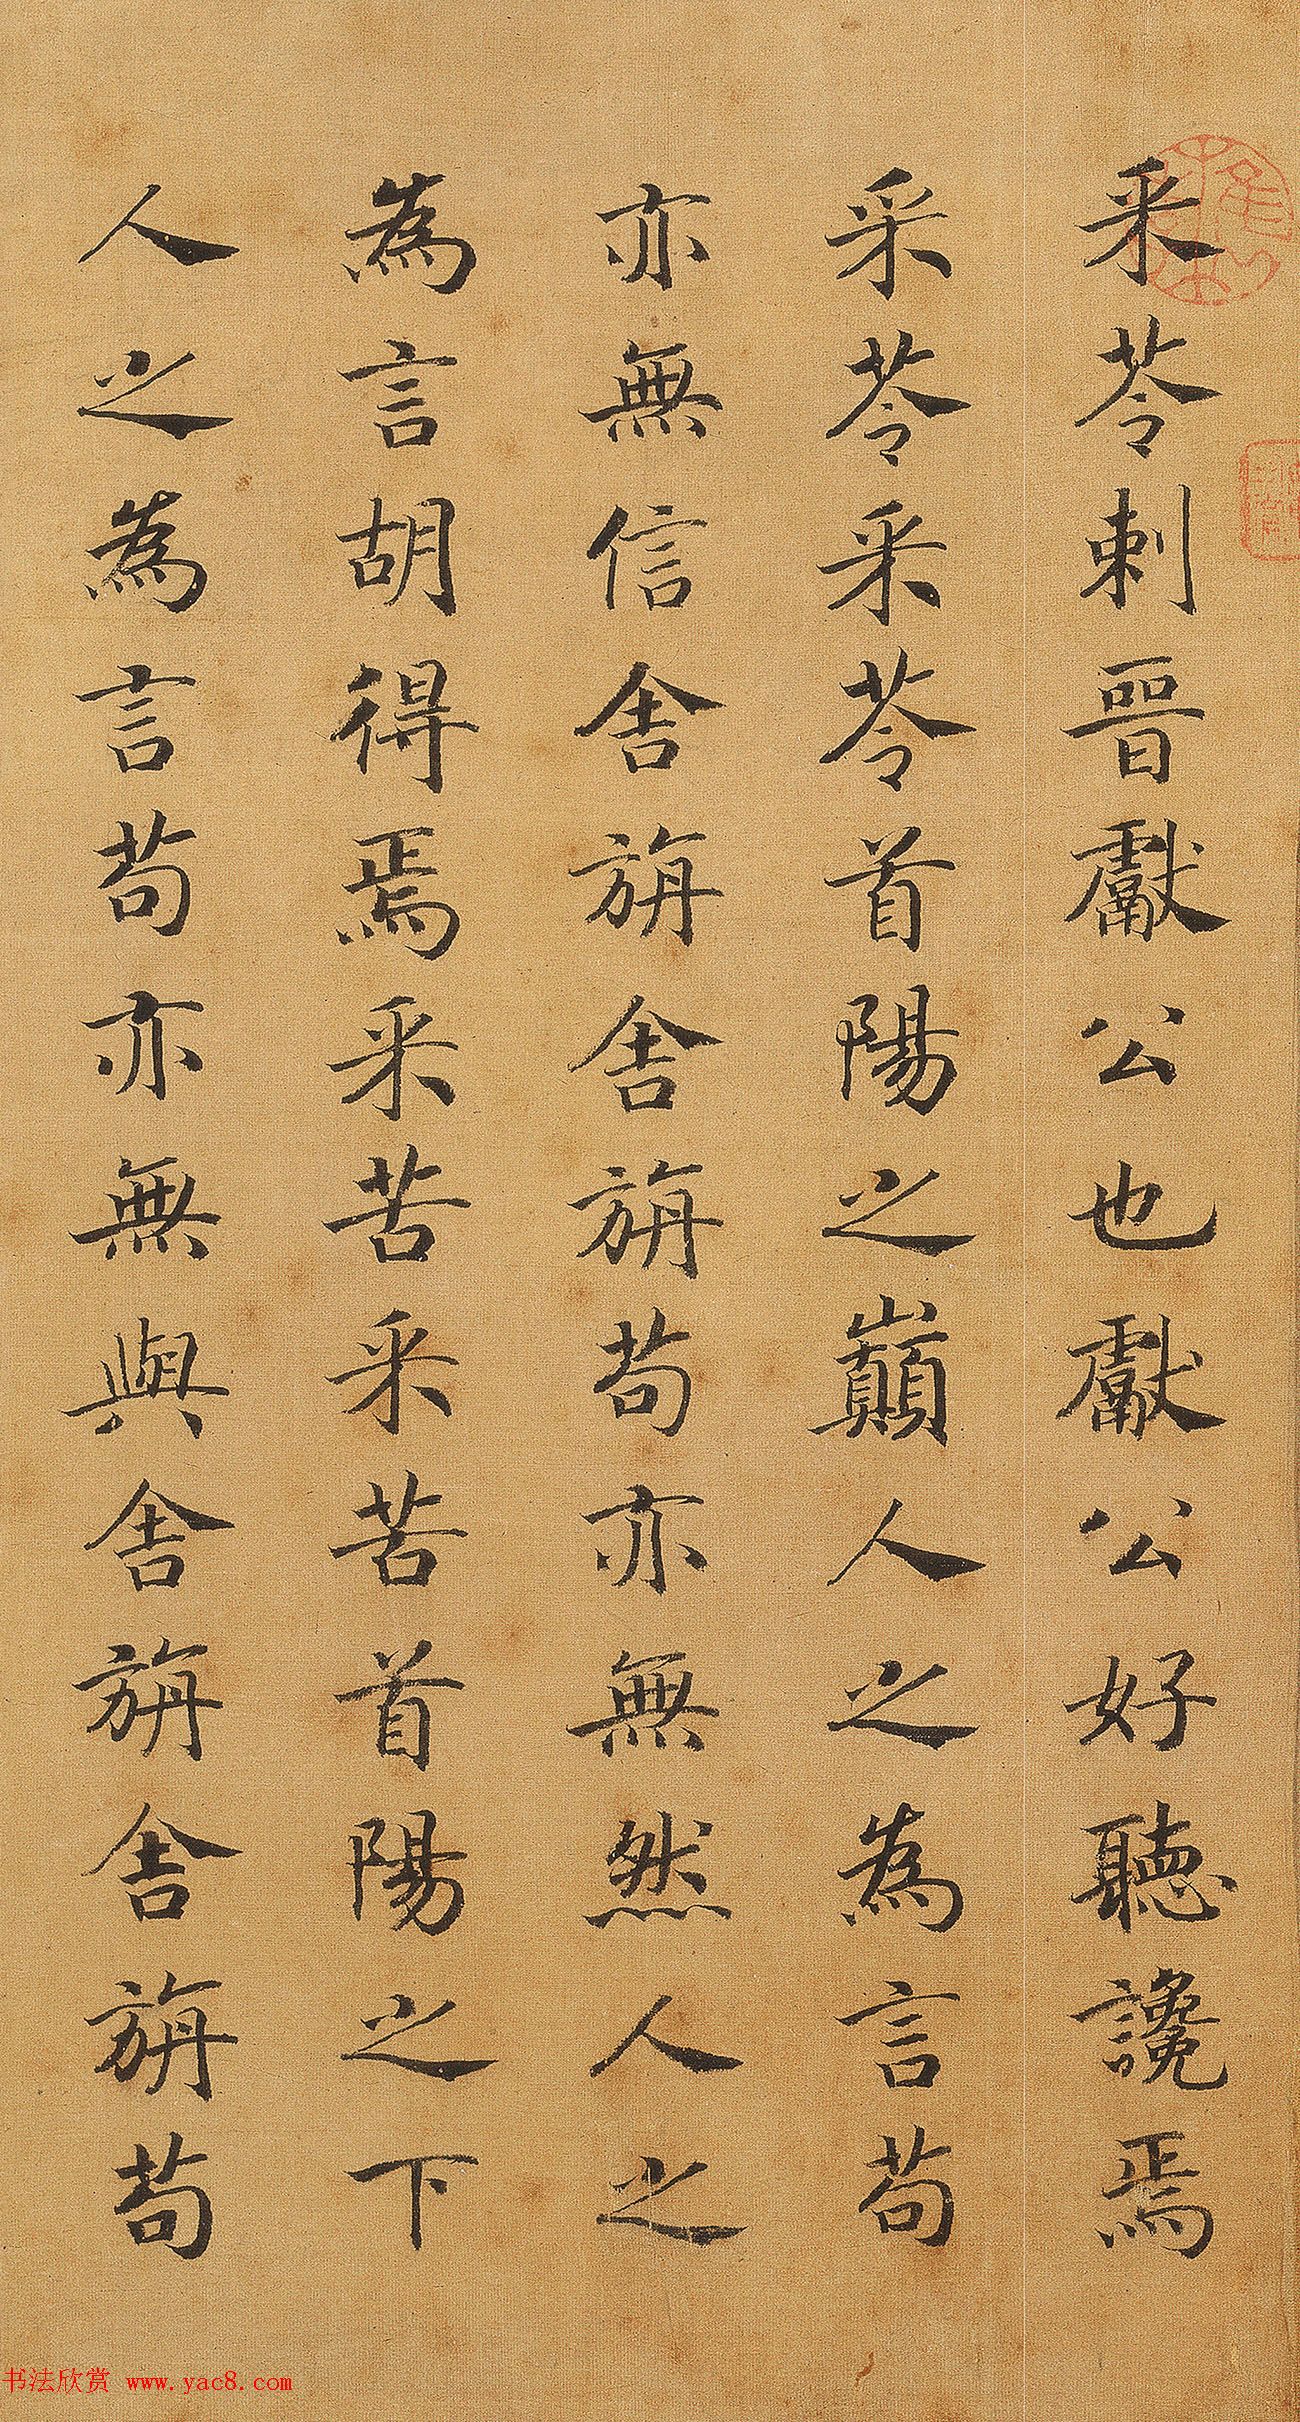 采苓刺晉獻公也獻公好聽讒焉
采苓采苓首陽之巔人之為言苟
亦無信舍旃舍旃苟亦無然人之
為言胡得焉采苦采苦首陽之下
人之為言苟亦無與舍旃舍旃苟
书法欣赏 www.yac8.com